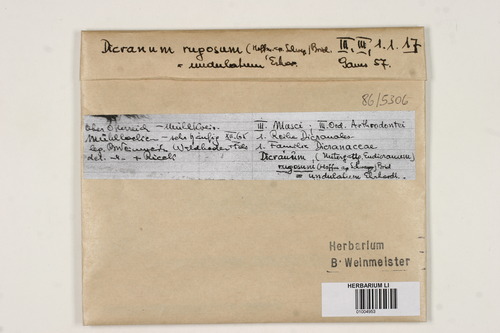 Dicranum rugosum (Hoffm. ap. Schwgr.) Brid. III, III, 1.1.17
= undulatum Ehrh. Gams 57.
86/5306
Ober Österreich – Mühlkreis.
Mühllacke – sehr häufig XII.65
Waldboden
det. + Ricek
III. Musci; III. Ord. Arthrodontei
1. Reihe Dicranales
1. Familie Dicranaceae
Dicranum, (Untergattg. Eudicranum)
rugosum (Hoffm. ap. Schwgr.) Brid
= undulatum Ehrhardt.
Herbarium
B. Weinmeister
HERBARIUM LI
01004953